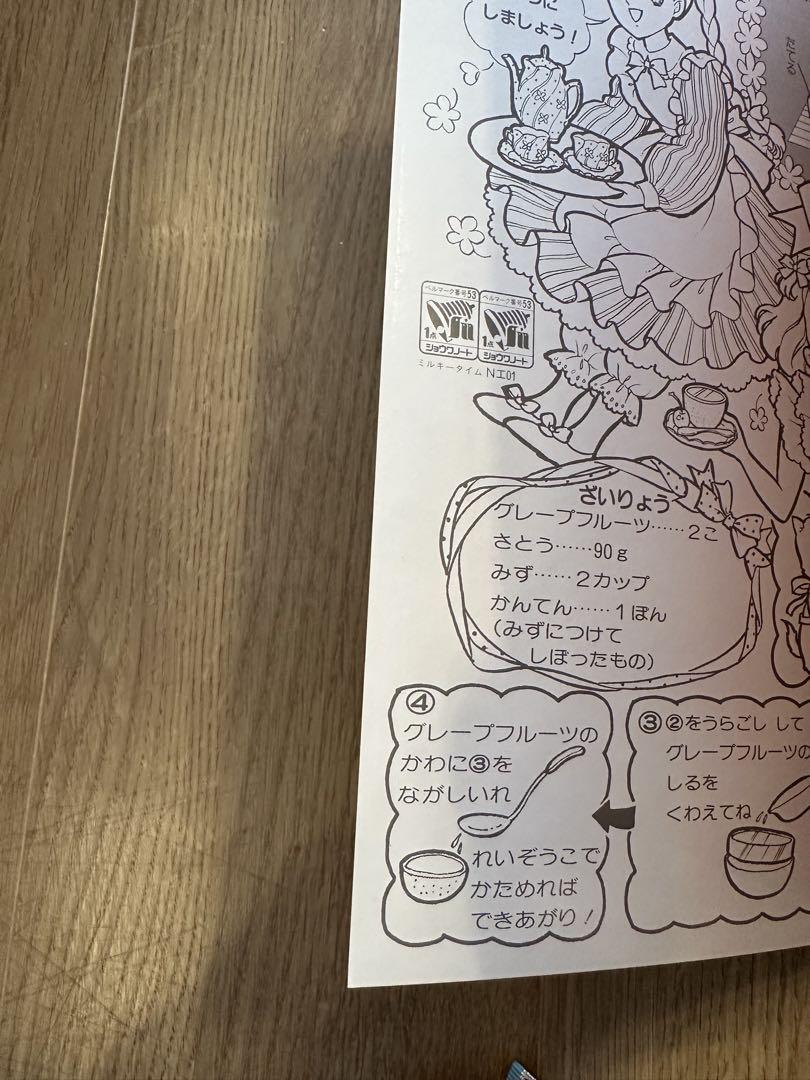 しましょう！
ベルマーク番号53
1点
ショウワノート
ベルマーク番号53
1点
ショウワノート
ミルキータイム Nエ01
ざいりょう
グレープフルーツ……2こ
さとう……90g
みず……2カップ
かんてん……1ぽん
(みずにつけて
しぼったもの)
③②をうらごし して
グレープフルーツの
しるを
くわえてね
④
グレープフルーツの
かわに③を
ながしいれ
れいぞうこで
かためれば
できあがり！